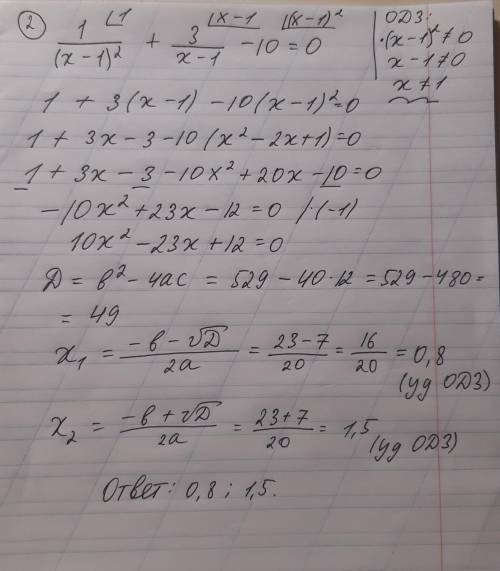 ② 1/(x-1)² ⌊1 + 3/(x-1) ⌊x-1 - 10 ⌊(x-1)² = 0
ОДЗ:
• (x-1)² ≠ 0
x-1 ≠ 0
x ≠ 1
1 + 3(x-1) - 10(x-1)² = 0
1 + 3x - 3 - 10(x² - 2x + 1) = 0
1 + 3x - 3 - 10x² + 20x - 10 = 0
-10x² + 23x - 12 = 0 /·(-1)
10x² - 23x + 12 = 0
D = в² - 4ac = 529 - 40·12 = 529 - 480 =
= 49
x₁ = (-в - √D)/2a = (23-7)/20 = 16/20 = 0,8
(уд ОДЗ)
x₂ = (-в + √D)/2a = (23+7)/20 = 1,5
(уд ОДЗ)
Ответ: 0,8; 1,5.